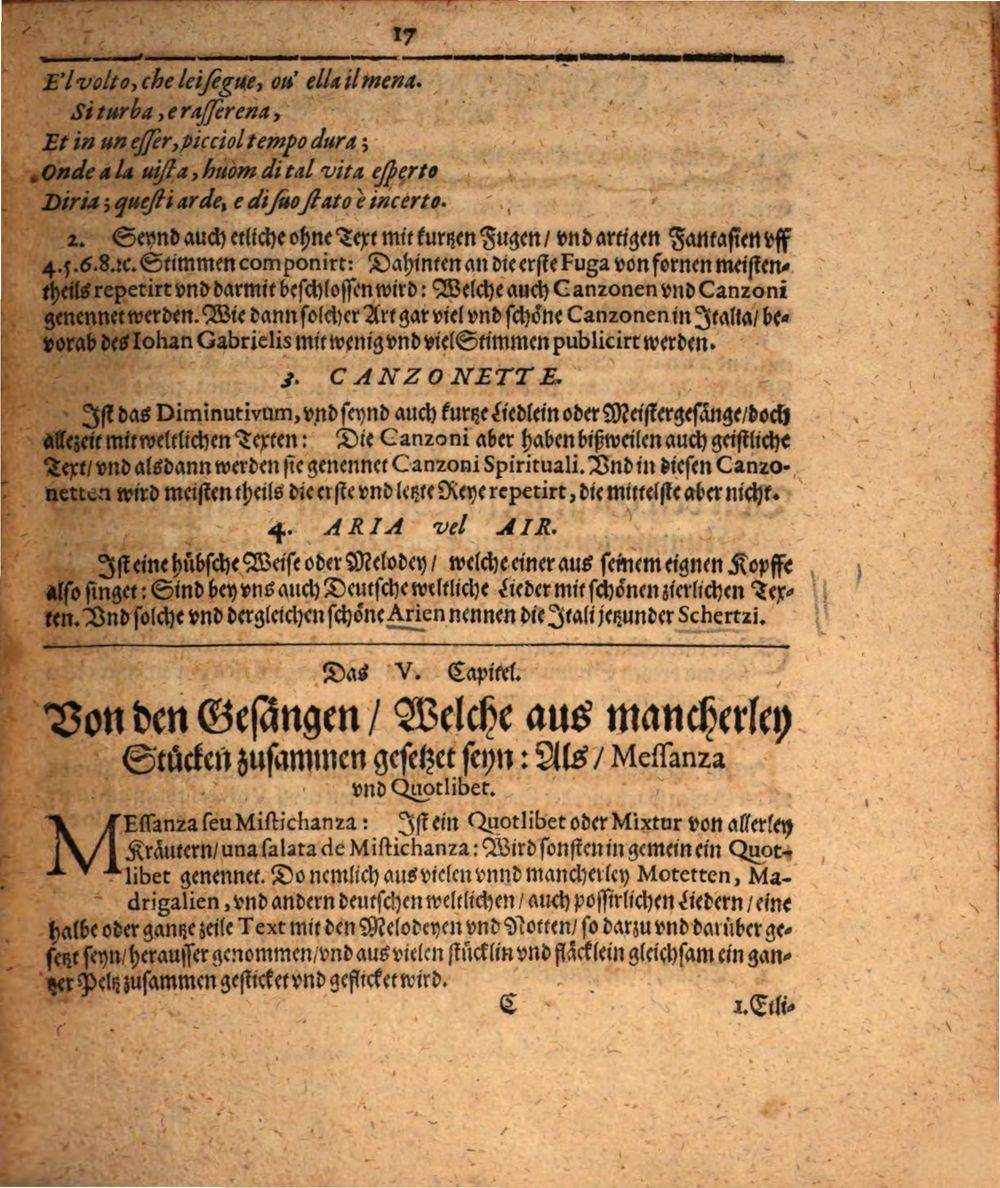 17
E'l volto, che lei ſegue, ou' ella il mena.
Si turba, e raſſerena,
Et in un eſſer, picciol tempo dura;
Onde a la uiſta, huom di tal vita eſperto
Diria; queſti arde, e di ſuo ſtato è incerto.
2. Seynd auch etliche ohne Text mit kurtzen Fugen / vnd artigen Fantaſien vff
4.5.6.8.ꝛc. Stimmen componirt: Dahinten an die erſte Fuga von fornen meiſten-
theils repetirt vnd darmit beſchloſſen wird: Welche auch Canzonen vnd Canzoni
genennet werden. Wie dann ſolcher Art gar viel vnd ſchöne Canzonen in Italia / be-
vorab des Iohan Gabrielis mit wenig vnd viel Stimmen publicirt werden.
3. CANZONETTE.
Iſt das Diminutivum, vnd ſeynd auch kurtze Liedlein oder Meiſtergeſänge / doch
allezeit mit weltlichen Texten: Die Canzoni aber haben bißweilen auch geiſtliche
Text / vnd alsdann werden ſie genennet Canzoni Spirituali. Vnd in dieſen Canzo-
netten wird meiſten theils die erſte vnd letzte Reye repetirt, die mittelſte aber nicht.
4. ARIA vel AIR.
Iſt eine hübſche Weiſe oder Melodey / welche einer aus ſeinem eignen Kopffe
alſo ſinget: Sind bey vns auch Deutſche weltliche Lieder mit ſchönen zierlichen Tex-
ten. Vnd ſolche vnd dergleichen ſchöne Arien nennen die Itali jetzunder Schertzi.
Das V. Capitel.
Von den Geſängen / Welche aus mancherley
Stücken zuſammen geſetzet ſeyn: Als / Meſſanza
vnd Quotlibet.
MEſſanza ſeu Miſtichanza: Iſt ein Quotlibet oder Mixtur von allerley
Kräutern / una ſalata de Miſtichanza: Wird ſonſten in gemein ein Quot-
libet genennet. Do nemlich aus vielen vnnd mancherley Motetten, Ma-
drigalien, vnd andern deutſchen weltlichen / auch poſſirlichen Liedern / eine
halbe oder gantze zeile Text mit den Melodeyen vnd Notten / ſo darzu vnd darüber ge-
ſetzt ſeyn / herauſſer genommen / vnd aus vielen ſtücklin vnd fläcklein gleichſam ein gan-
tzer Peltz zuſammen geſticket vnd geflicket wird.
C 1. Etli-